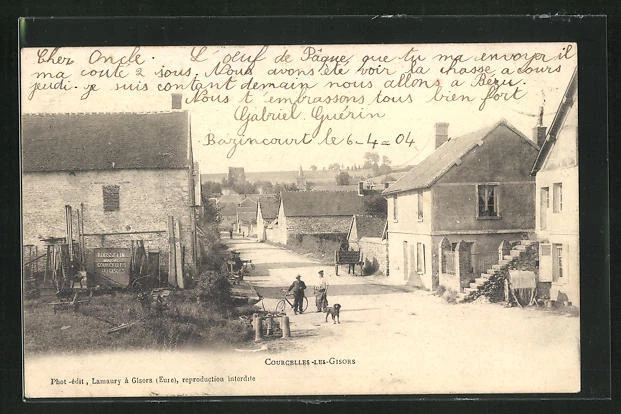 Cher Oncle. L'oeuf de Pâque, que tu ma envoyer il
ma coute 2 sous, Nous avons été voir la chasse a cours
jeudi. je suis contant demain nous allons a Bezu.
Nous t'embrassons tous bien fort
Gabriel Guérin
Bazincourt le 6-4-04
COURCELLES
GISORS
COURCELLES-LES-GISORS
Phot-édit, Lamaury à Gisors (Eure), reproduction interdite